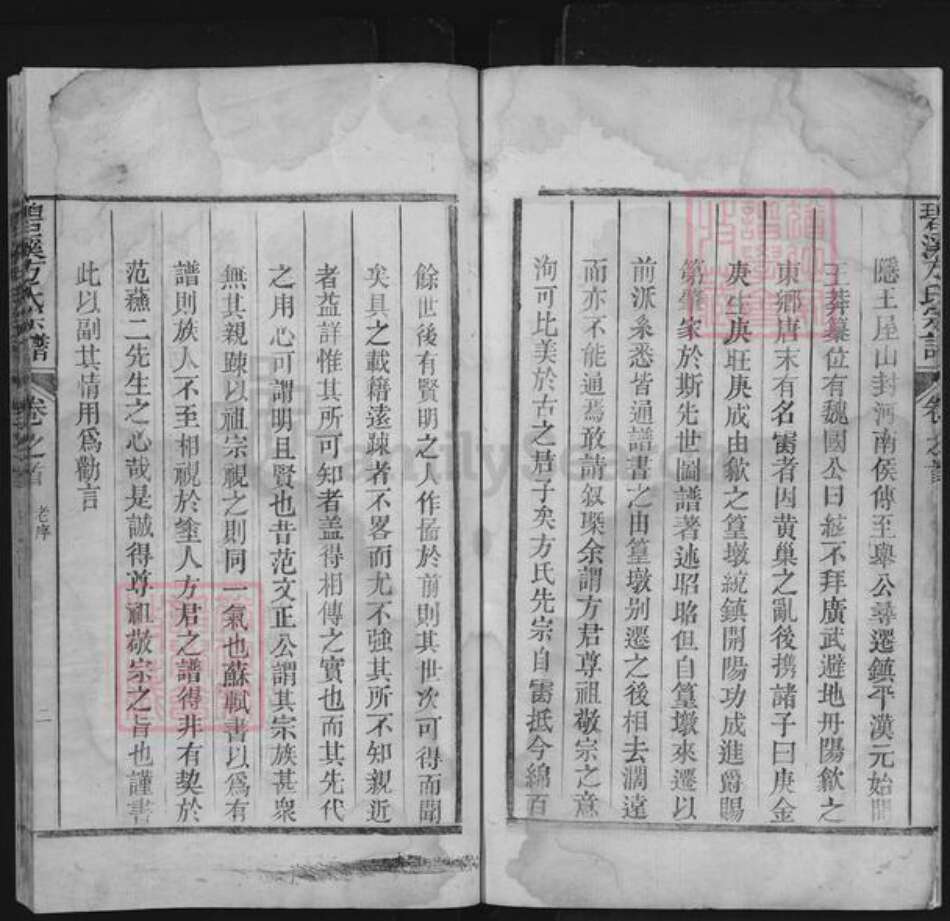 隱王屋山封河南侯傳至舉公尋遷鎮平漢元始間
王莽纂位有魏國公曰紘不拜廣武避地丹陽歙之
東鄉唐末有名雷者因黄巢之亂後携諸子曰庚金
庚生庚旺庚成由歙之篁墩統鎮開陽功成進爵賜
第肇家於斯先世圖譜著述昭昭但自篁墩來遷以
前派系悉皆通譜書之由篁墩别遷之後相去濶遠
而亦不能通焉敢請叙槩余謂方君尊祖敬宗之意
洵可比美於古之君子矣方氏先宗自雷抵今綿百
餘世後有賢明之人作啚於前則其世次可得而聞
矣具之載籍遠踈者不畧而尤不強其所不知親近
者益詳惟其所可知者盖得相傳之實也而其先代
之用心可謂明且賢也昔范文正公謂其宗族甚衆
無其親踈以祖宗視之則同一氣也蘇軾書以爲有
譜則族人不至相視於塗人方君之譜得非有契於
范蘇二先生之心哉是誠得尊祖敬宗之旨也謹書
此以副其情用爲勸言
碧溪方氏宗譜
卷之首
老序
二